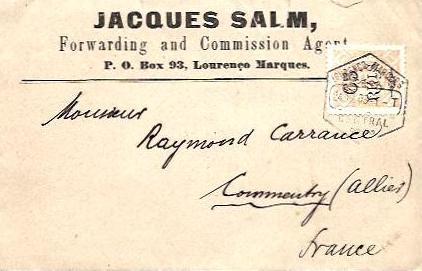 JACQUES SALM,
Forwarding and Commission Agent
P. O. Box 93, Lourenço Marques.
65
Monsieur
Raymond Carrance
Commentry (Allier)
France